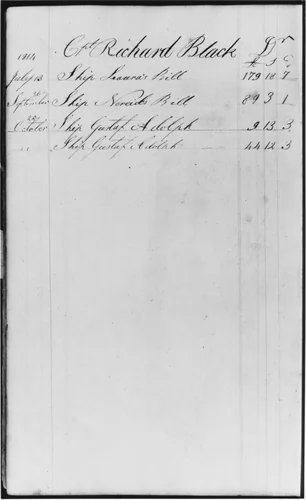 1814 Cpt Richard Black Dr
£ S
July 13 Ship Laura's Bill 179 18 7
September Ship Bill 89 3 1
October Ship Gustaf Adolph 9 13 3
" Ship Gustaf Adolph 44 12 3